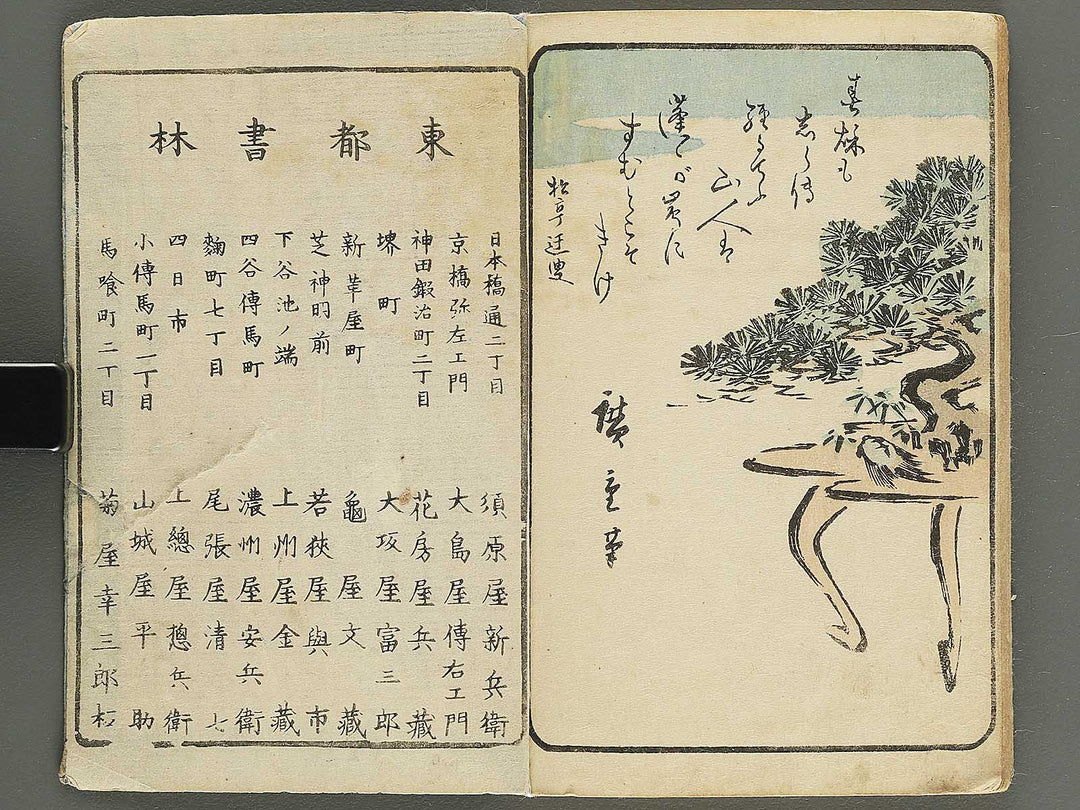 春秋も
山人は
すむとこそ
きけ
松亭迂叟
廣重筆
東都書林
日本橋通二丁目 須原屋新兵衛
京橋弥左エ門 大島屋傳右エ門
神田鍛冶町二丁目 花房屋兵藏
堺町 大坂屋富三郎
新革屋町 龜屋文藏
芝神明前 若狹屋與市
下谷池ノ端 上州屋金藏
四谷傳馬町 濃州屋安兵衛
麹町七丁目 尾張屋清七
四日市 上總屋摠兵衛
小傳馬町一丁目 山城屋平助
馬喰町二丁目 菊屋幸三郎板